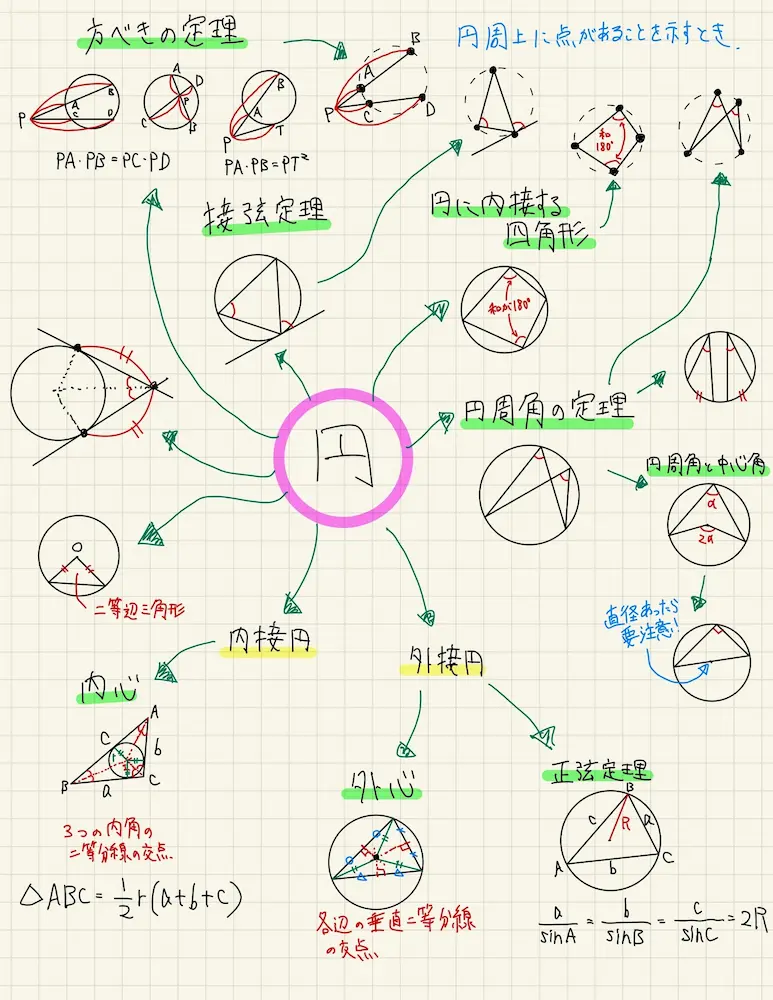 方べきの定理
円周上に点があることを示すとき.
P
A
B
C
D
A
D
P
C
B
P
A
B
T
P
A
B
C
D
和
180°
PA・PB=PC・PD
PA・PB=PT²
接弦定理
円に内接する
四角形
和が180°
円
円周角の定理
円周角と中心角
α
2α
直径あったら
要注意!
O
二等辺三角形
内接円
外接円
内心
A
B
C
c
b
a
r
3つの内角の
二等分線の交点
△ABC=1/2r(a+b+c)
外心
各辺の垂直二等分線
の交点
正弦定理
B
c
R
a
A
b
C
a/sinA=b/sinB=c/sinC=2R